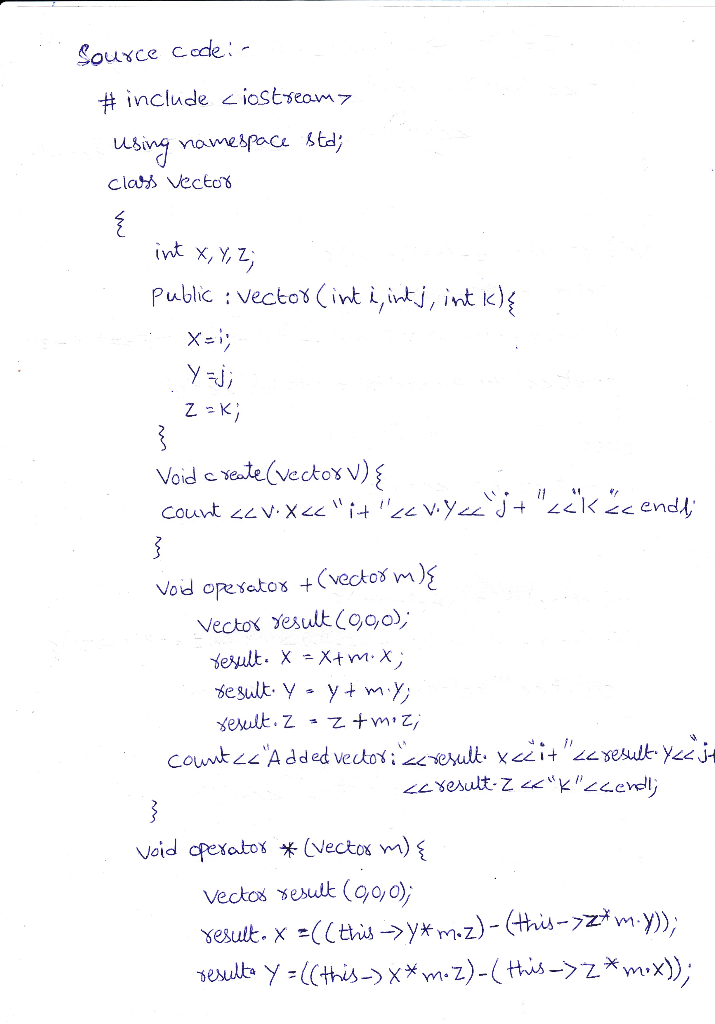 Source code:-
# include <iostream>
using namespace std;
class vector
{
int x, y, z;
Public : vector (int i, int j, int k){
x=i;
y=j;
z=k;
}
Void create(vector v){
count <<v.x<<"i+"<<v.y<<"j+"<<"k"<<endl;
}
Void operator +(vector m){
Vector result (0,0,0);
result. x = x+m.x;
result. y = y+m.y;
result. z = z+m.z;
count<<"Added vector:"<<result. x<<"i+"<<result.y<<"j+
<<result.z <<"k"<<endl;
}
Void operator * (vector m) {
Vector result (0,0,0);
result. x =((this->y*m.z)-(this->z*m.y));
result. y =((this->x*m.z)-(this->z*m.x));